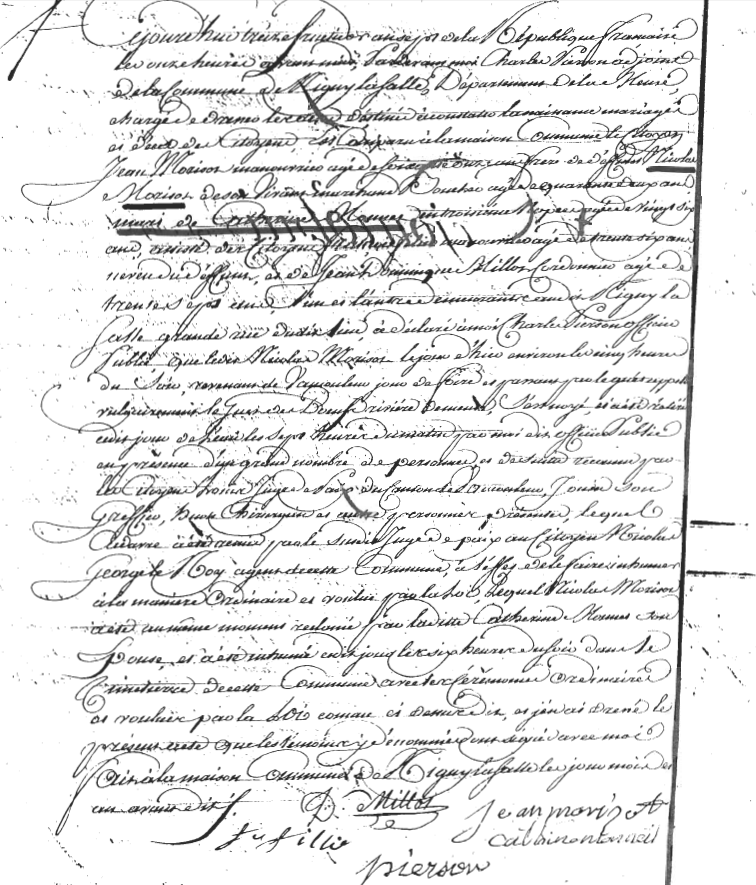 Cejourd'hui treize fructidor an sept de la République française
les onze heures avant midi, Pardevant moi Charles Pierson adjoint
de la Commune de Rigny la salle, Département de la Meuse,
chargé de dresser les actes destinés à constater la naissance mariages
et décès des Citoyens sont Comparus à la maison Commune le citoyen
Jean Morisot manouvrier agé de soixante ans frere de deffunt Nicolas
Morisot de son vivant marchand agé de quarante ans
mari de Catherine Monnes en troisieme Noces agée de vingt six
ans, assisté des Citoyens manouvrier agé de trente six ans
neveu du deffunt, et de Jean Dominique Millot Cordonnier agé de
trente sept ans, l'un et l'autre demeurants audit Rigny la
salle grande rue dudit lieu a déclaré à moi Charles Pierson officier
Public que ledit Nicolas Morisot le jour d'hier environ les cinq heures
du Soir, revenant de Vaucouleurs jour de foire et passant par le gué appellé
vulgairement le Gué des rivière de meuse, s'est noyé et a été retiré
cedit jour de les sept heures du matin par moi dit officier Public
en présence d'un grand nombre de personnes, et de suite reconnu par
le Citoyen Juge de Paix du Canton de Vaucouleurs, son
Greffier, Chirurgien et autres personnes présentes, lequel
Cadavre a été remis par le susdit Juge de paix au Citoyen Nicolas
George le Roy agent de cette Commune, à l'effet de le faire inhumer
à la maniere Ordinaire et voulue par la Loi Lequel Nicolas Morisot
a été au même moment reclamé par ladite Catherine Monnes son
Epouse, et a été inhumé cedit jour les six heures du soir dans le
Cimetierre de cette Commune avec les Cérémonies Ordinaires
et voulues par la Loi comme ci dessus dit, et j'en ai dressé le
présent acte que les témoins y dénommés ont signé avec moi
Fait à la maison Commune de Rigny la salle les jour mois et
an avant dits.
J. D. Millot
Jean morisot
pierson